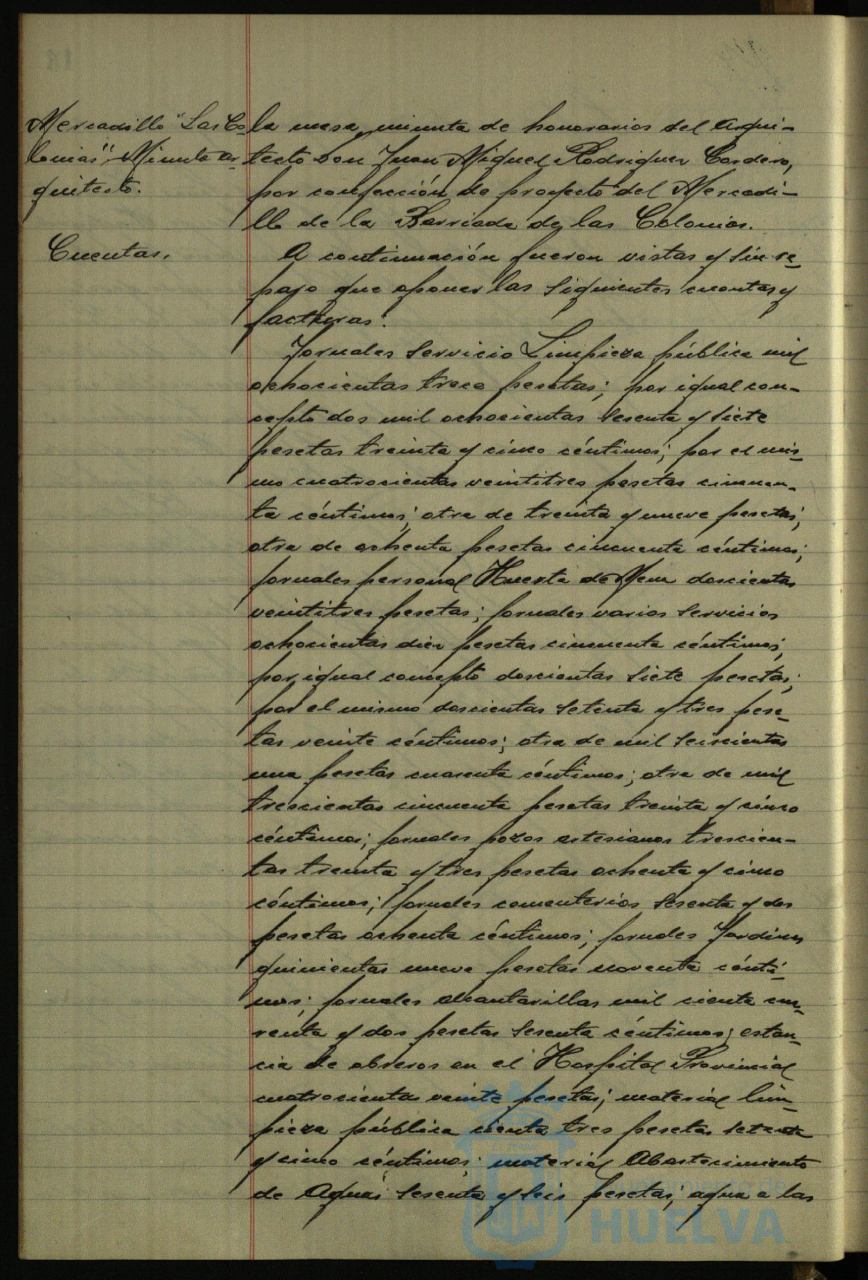 Mercadillo "Las Co-
lonias". Minuta ar-
quitecto.
la mesa, minuta de honorarios del Arqui-
tecto Don Juan Miguel Rodriguez Cordero,
por confección de proyecto del Mercadi-
llo de la Barriada de las Colonias.
Cuentas.
A continuación fueron vistas y sin re-
paro que oponer las siguientes cuentas y
facturas:
Jornales servicio Limpieza pública mil
ochocientas trece pesetas; por igual con-
cepto dos mil ochocientas sesenta y siete
pesetas treinta y cinco céntimos; por el mis-
mo cuatrocientas veintitres pesetas cincuen-
ta céntimos; otra de treinta y nueve pesetas;
otra de ochenta pesetas cincuenta céntimos;
jornales personal Huerta de Mena doscientas
veintitres pesetas; jornales varios servicios
ochocientas diez pesetas cincuenta céntimos;
por igual concepto doscientas siete pesetas;
por el mismo doscientas setenta y tres pese-
tas veinte céntimos; otra de mil seiscientas
una pesetas cuarenta céntimos; otra de mil
trescientas cincuenta pesetas treinta y cinco
céntimos; jornales pozos artesianos trescien-
tas treinta y tres pesetas ochenta y cinco
céntimos; jornales cementerios sesenta y dos
pesetas ochenta céntimos; jornales Jardines
quinientas nueve pesetas noventa cénti-
mos; jornales alcantarillas mil cienta cua-
renta y dos pesetas sesenta céntimos; estan-
cia de obreros en el Hospital Provincial
cuatrocientas veinte pesetas; material lim-
pieza pública cienta tres pesetas setenta
y cinco céntimos; material Abastecimiento
de Aguas sesenta y seis pesetas; agua a las
Ayuntamiento de
HUELVA